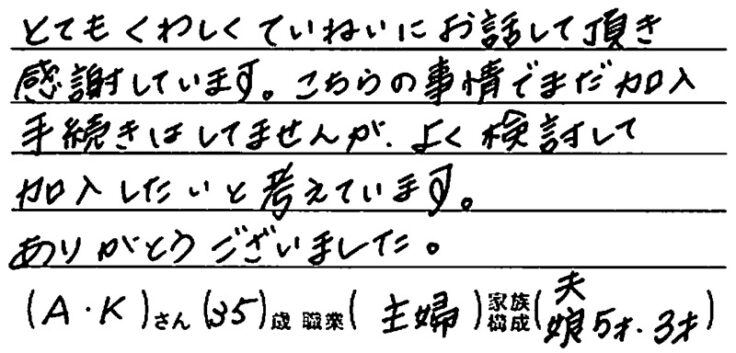 とてもくわしくていねいにお話して頂き
感謝しています。こちらの事情でまだ加入
手続きはしてませんが、よく検討して
加入したいと考えています。
ありがとうございました。
(A・K)さん(35)歳 職業(主婦)家族構成(夫 娘5才・3才)